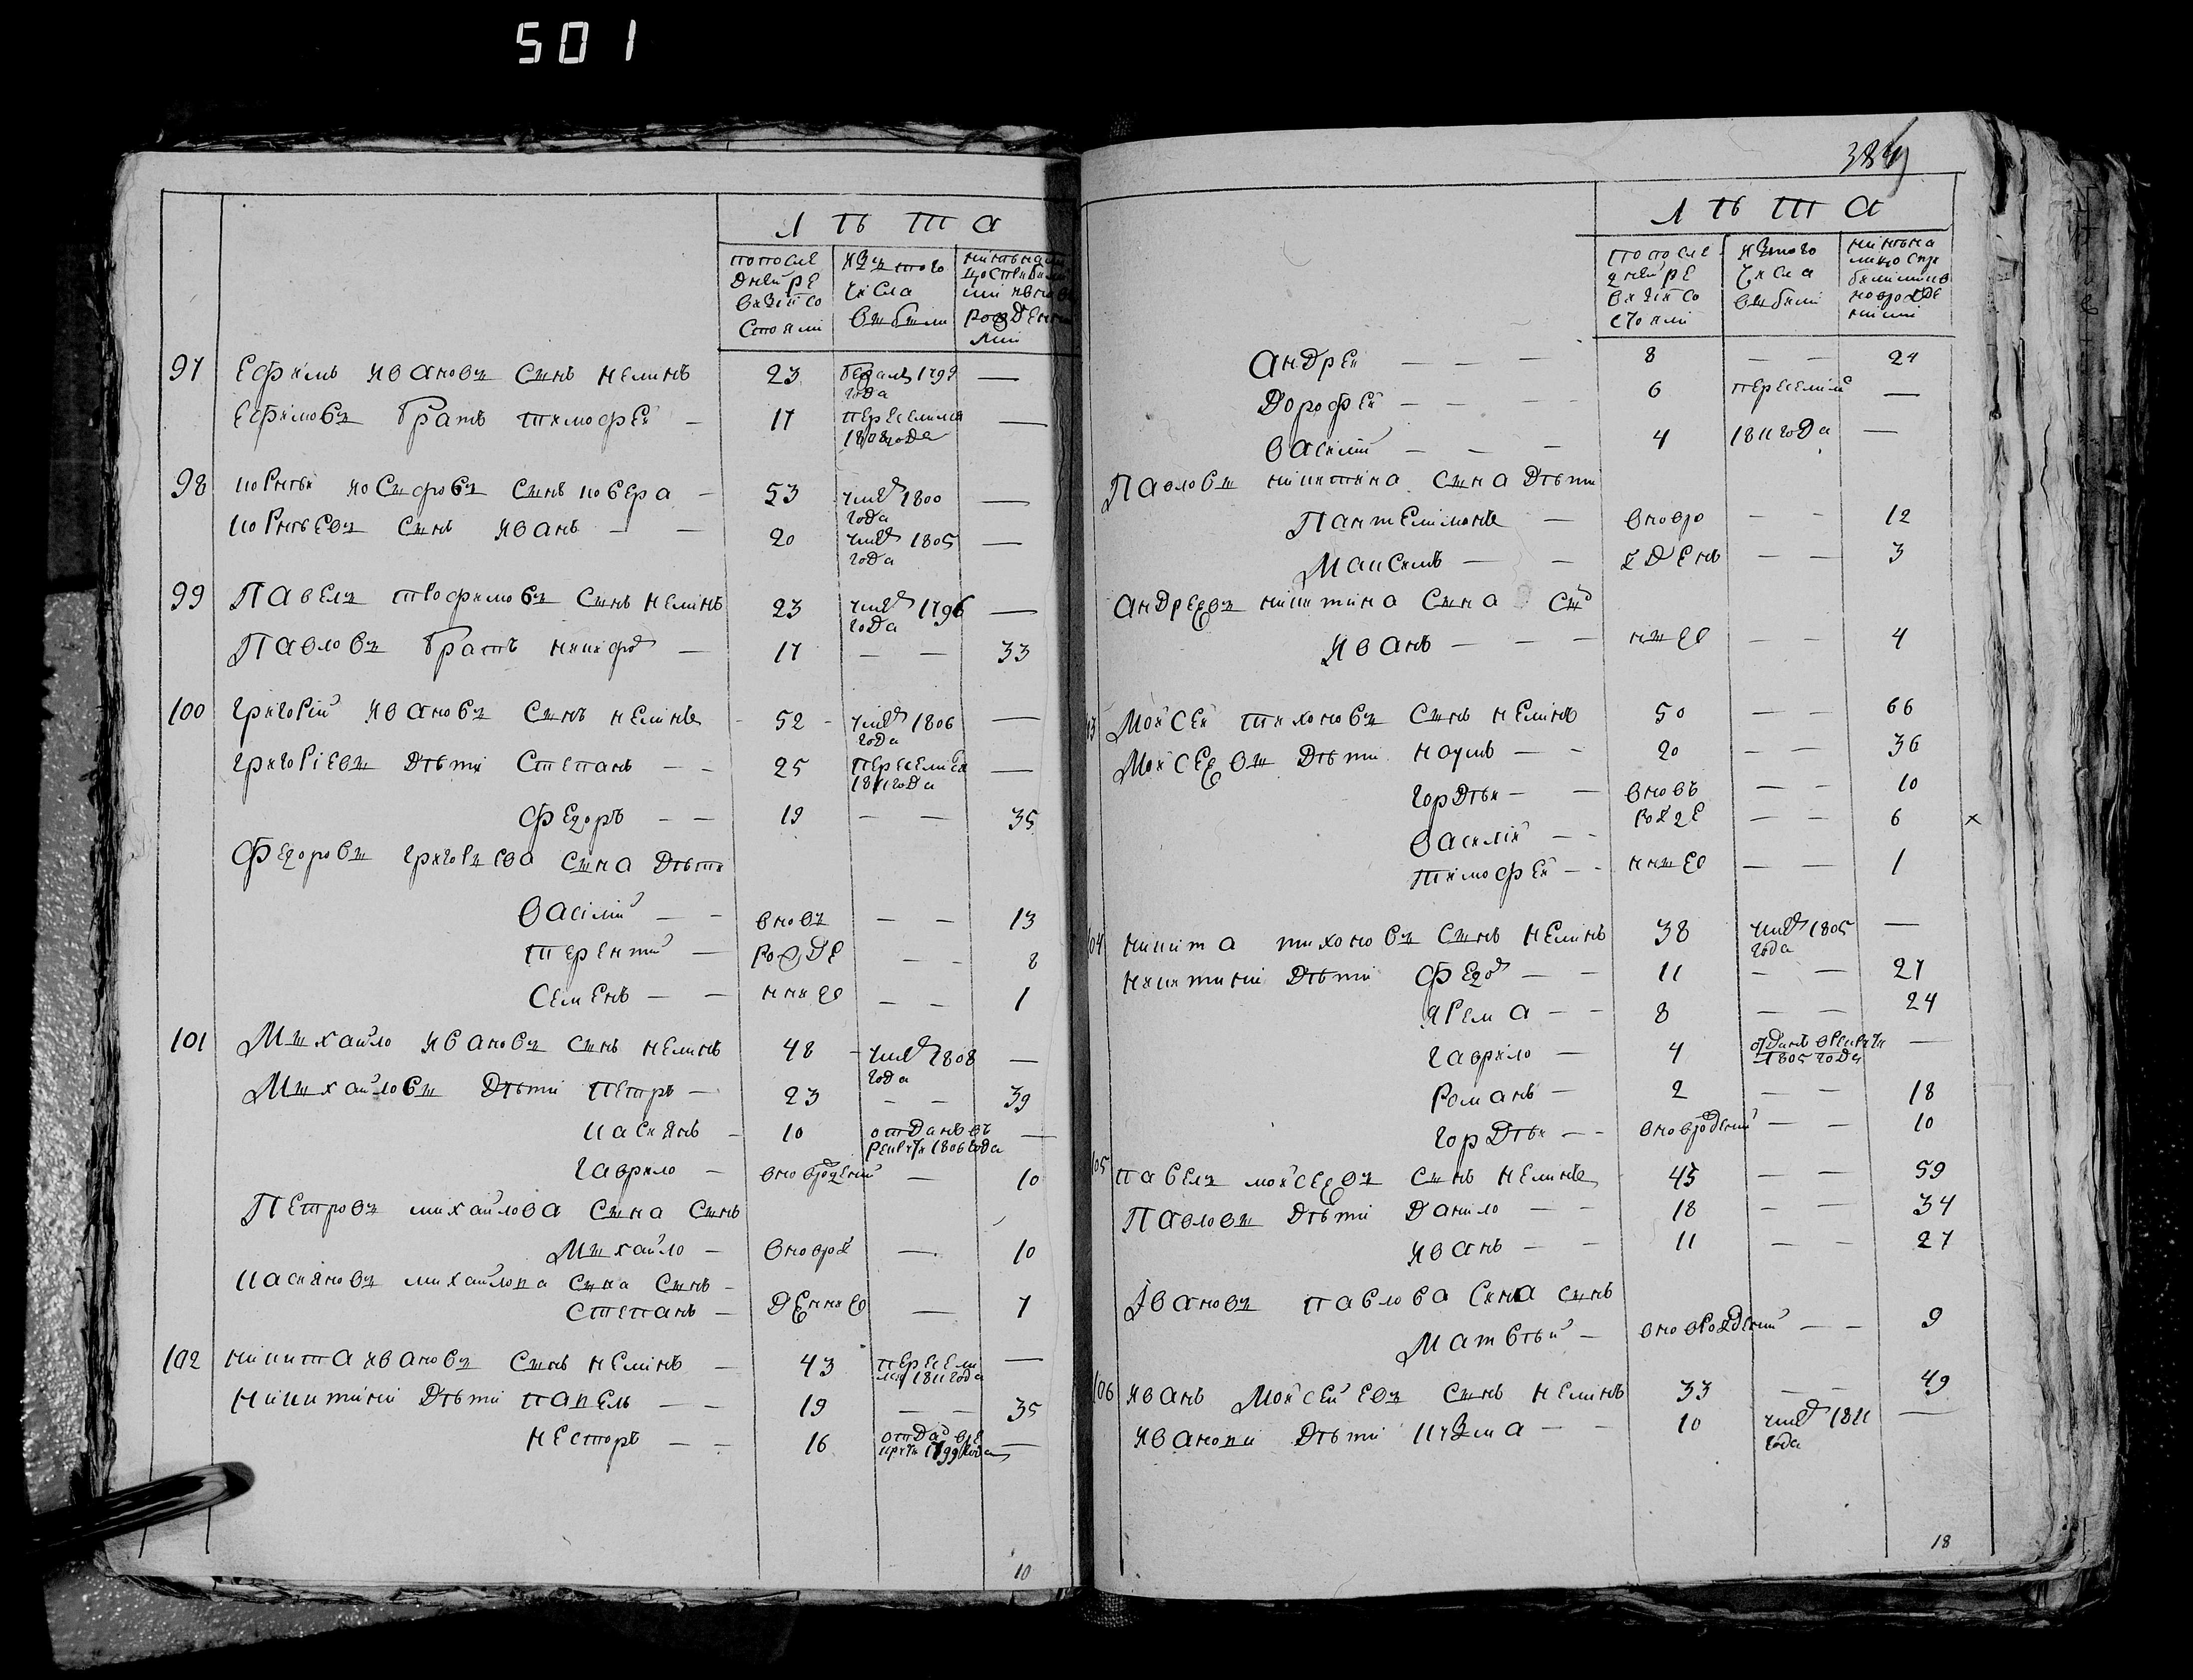 501
Лѣта
по после
дней ре
визіи со
стояли
изъ того
числа
выбыли
97 Ефимъ Ивановъ сынъ Нелинъ 23 бежалъ 1797 года —
Ефимовъ братъ Тимофей — 17 переселился 1808 года —
98 Корнѣй Иосифовъ сынъ — 53 умер 1800 года —
Корнѣевъ сынъ Иванъ — — 20 умер 1805 года —
99 Павелъ Трофимовъ сынъ Нелинъ 23 умер 1796 года —
Павловъ братъ Никифор — 17 — — 33
100 Григорій Ивановъ сынъ Нелинъ 52 умер 1806 года —
Григоріевы дѣти Степанъ — — 25 переселился 1811 года —
Федоръ — — 19 — — 35
Федоровы Григорьева сына дѣти
Василий — — вновъ — — 13
Терентий — рожде — — 8
Семенъ — — нные — — 1
101 Мыхайло Ивановъ сынъ Нелинъ 48 умер 1808 года —
Мыхайловы дѣти Петръ — 23 — — 39
Касиянъ — 10 отданъ въ рекруты 1806 года —
Гаврило — вноврожденный — 10
Петровъ михайлова сына сынъ
Мыхайло — вноврож — 10
Касияновъ михайлова сына сынъ —
Степанъ — денные — 7
102 Никита Ивановъ сынъ Нелинъ — 43 переселился 1811 года —
Никитины дѣти Павелъ — — 19 — — 35
Несторъ — — 16 отдан в рекруты 1799 года —
10
384
Лѣта
по после
дней ре
визіи со
стояли
изъ того
числа
выбыли
Андрей — — — 8 — — 24
Дорофей — — — 6 переселились —
Василий — — — 4 1811 года —
Павловы Никитина сына дѣти
Пантелимонъ — вновро — — 12
Максимъ — — жденъ — — 3
Андреевъ Никитина сына сын
Иванъ — — — ные — — 4
Мойсей Тихоновъ сынъ Нелинъ 50 — — 66
Мойсеевы дѣти Наумъ — — 20 — — 36
Гордѣй — — вновъ — — 10
Василий — — рожде — — 6 х
Тимофей — — нные — — 1
104 Никита Тихоновъ сынъ Нелинъ 38 умер 1805 года —
Никитины дѣти Федор — — 11 — — 27
Ярема — — 8 — — 24
Гаврило — 4 отданъ в рекруты 1805 года —
Романъ — 2 — — 18
Гордѣй — — вноврожденный — — 10
105 Павелъ Мойсеевъ сынъ Нелинъ 43 — — 59
Павловы дѣти Данило — — 18 — — 34
Иванъ — — 11 — — 27
Ивановъ Павлова сына сынъ
Матвѣй — вноврожденный — — 9
106 Иванъ Мойсеевъ сынъ Нелинъ 33 — — 49
Ивановы дѣти Кузма — — 10 умер 1811 года —
18